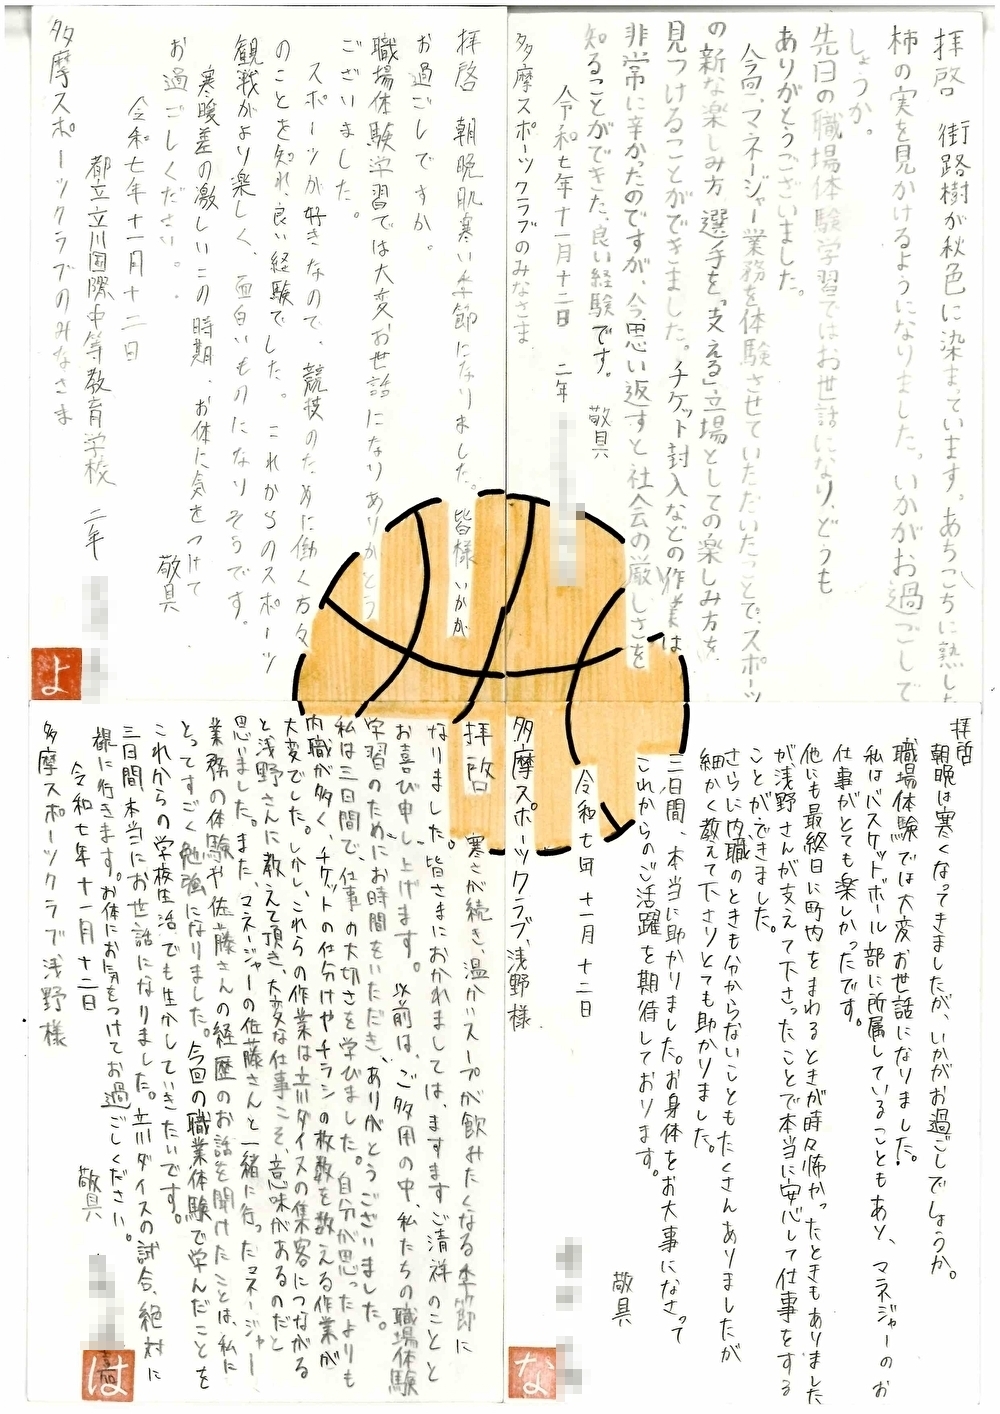 拝啓 街路樹が秋色に染まっています。あちこちに熟した
柿の実を見かけるようになりました。いかがお過ごしで
しょうか。
先日の職場体験学習ではお世話になり、どうも
ありがとうございました。
今回、マネージャー業務を体験させていただいたことで、スポーツ
の新な楽しみ方、選手を「支える」立場としての楽しみ方を
見つけることができました。チケット封入などの作業は
非常に辛かったのですが、今思い返すと社会の厳しさを
知ることができた、良い経験です。
敬具
令和七年十一月十二日 二年
多摩スポーツクラブのみなさま
拝啓 朝晩肌寒い季節になりました。皆様いかが
お過ごしですか。
職場体験学習では大変お世話になりありがとう
ございました。
スポーツが好きなので、競技のために働く方々
のことを知れ、良い経験でした。これからのスポーツ
観戦がより楽しく、面白いものになりそうです。
寒暖差の激しいこの時期、お体に気をつけて
お過ごしください。
敬具
令和七年十一月十二日
都立立川国際中等教育学校 二年
多摩スポーツクラブのみなさま
よ
拝啓
朝晩は寒くなってきましたが、いかがお過ごしでしょうか。
職場体験では大変お世話になりました。
私はバスケットボール部に所属していることもあり、マネジャーのお
仕事がとても楽しかったです。
他にも最終日に町内をまわるときが時々怖かったときもありました
が浅野さんが支えて下さったことで本当に安心して仕事をする
ことができました。
さらに内職のときも分からないこともたくさんありましたが
細かく教えて下さりとても助かりました。
三日間、本当に助かりました。お身体をお大事になさって
これからのご活躍を期待しております。
敬具
令和七年十一月十二日
多摩スポーツクラブ、浅野様
な
拝啓 寒さが続き、温かいスープが飲みたくなる季節に
なりました。皆さまにおかれましては、ますますご清祥のことと
お喜び申し上げます。以前は、ご多用の中、私たちの職場体験
学習のためにお時間をいただき、ありがとうございました。
私は三日間で、仕事の大切さを学びました。自分が思ったよりも
内職が多く、チケットの仕分けやチラシの枚数を数える作業が
大変でした。しかし、これらの作業は立川ダイスの集客につながる
と浅野さんに教えて頂き、大変な仕事こそ、意味があるのだと
思いました。また、マネージャーの佐藤さんと一緒に行ったマネージャー
業務の体験や佐藤さんの経歴のお話を聞けたことは、私に
とってすごく勉強になりました。今回の職業体験で学んだことを
これからの学校生活でも生かしていきたいです。
三日間本当にお世話になりました。立川ダイスの試合、絶対に
観に行きます。お体にお気をつけてお過ごしください。
敬具
令和七年十一月十二日
多摩スポーツクラブ浅野様
は